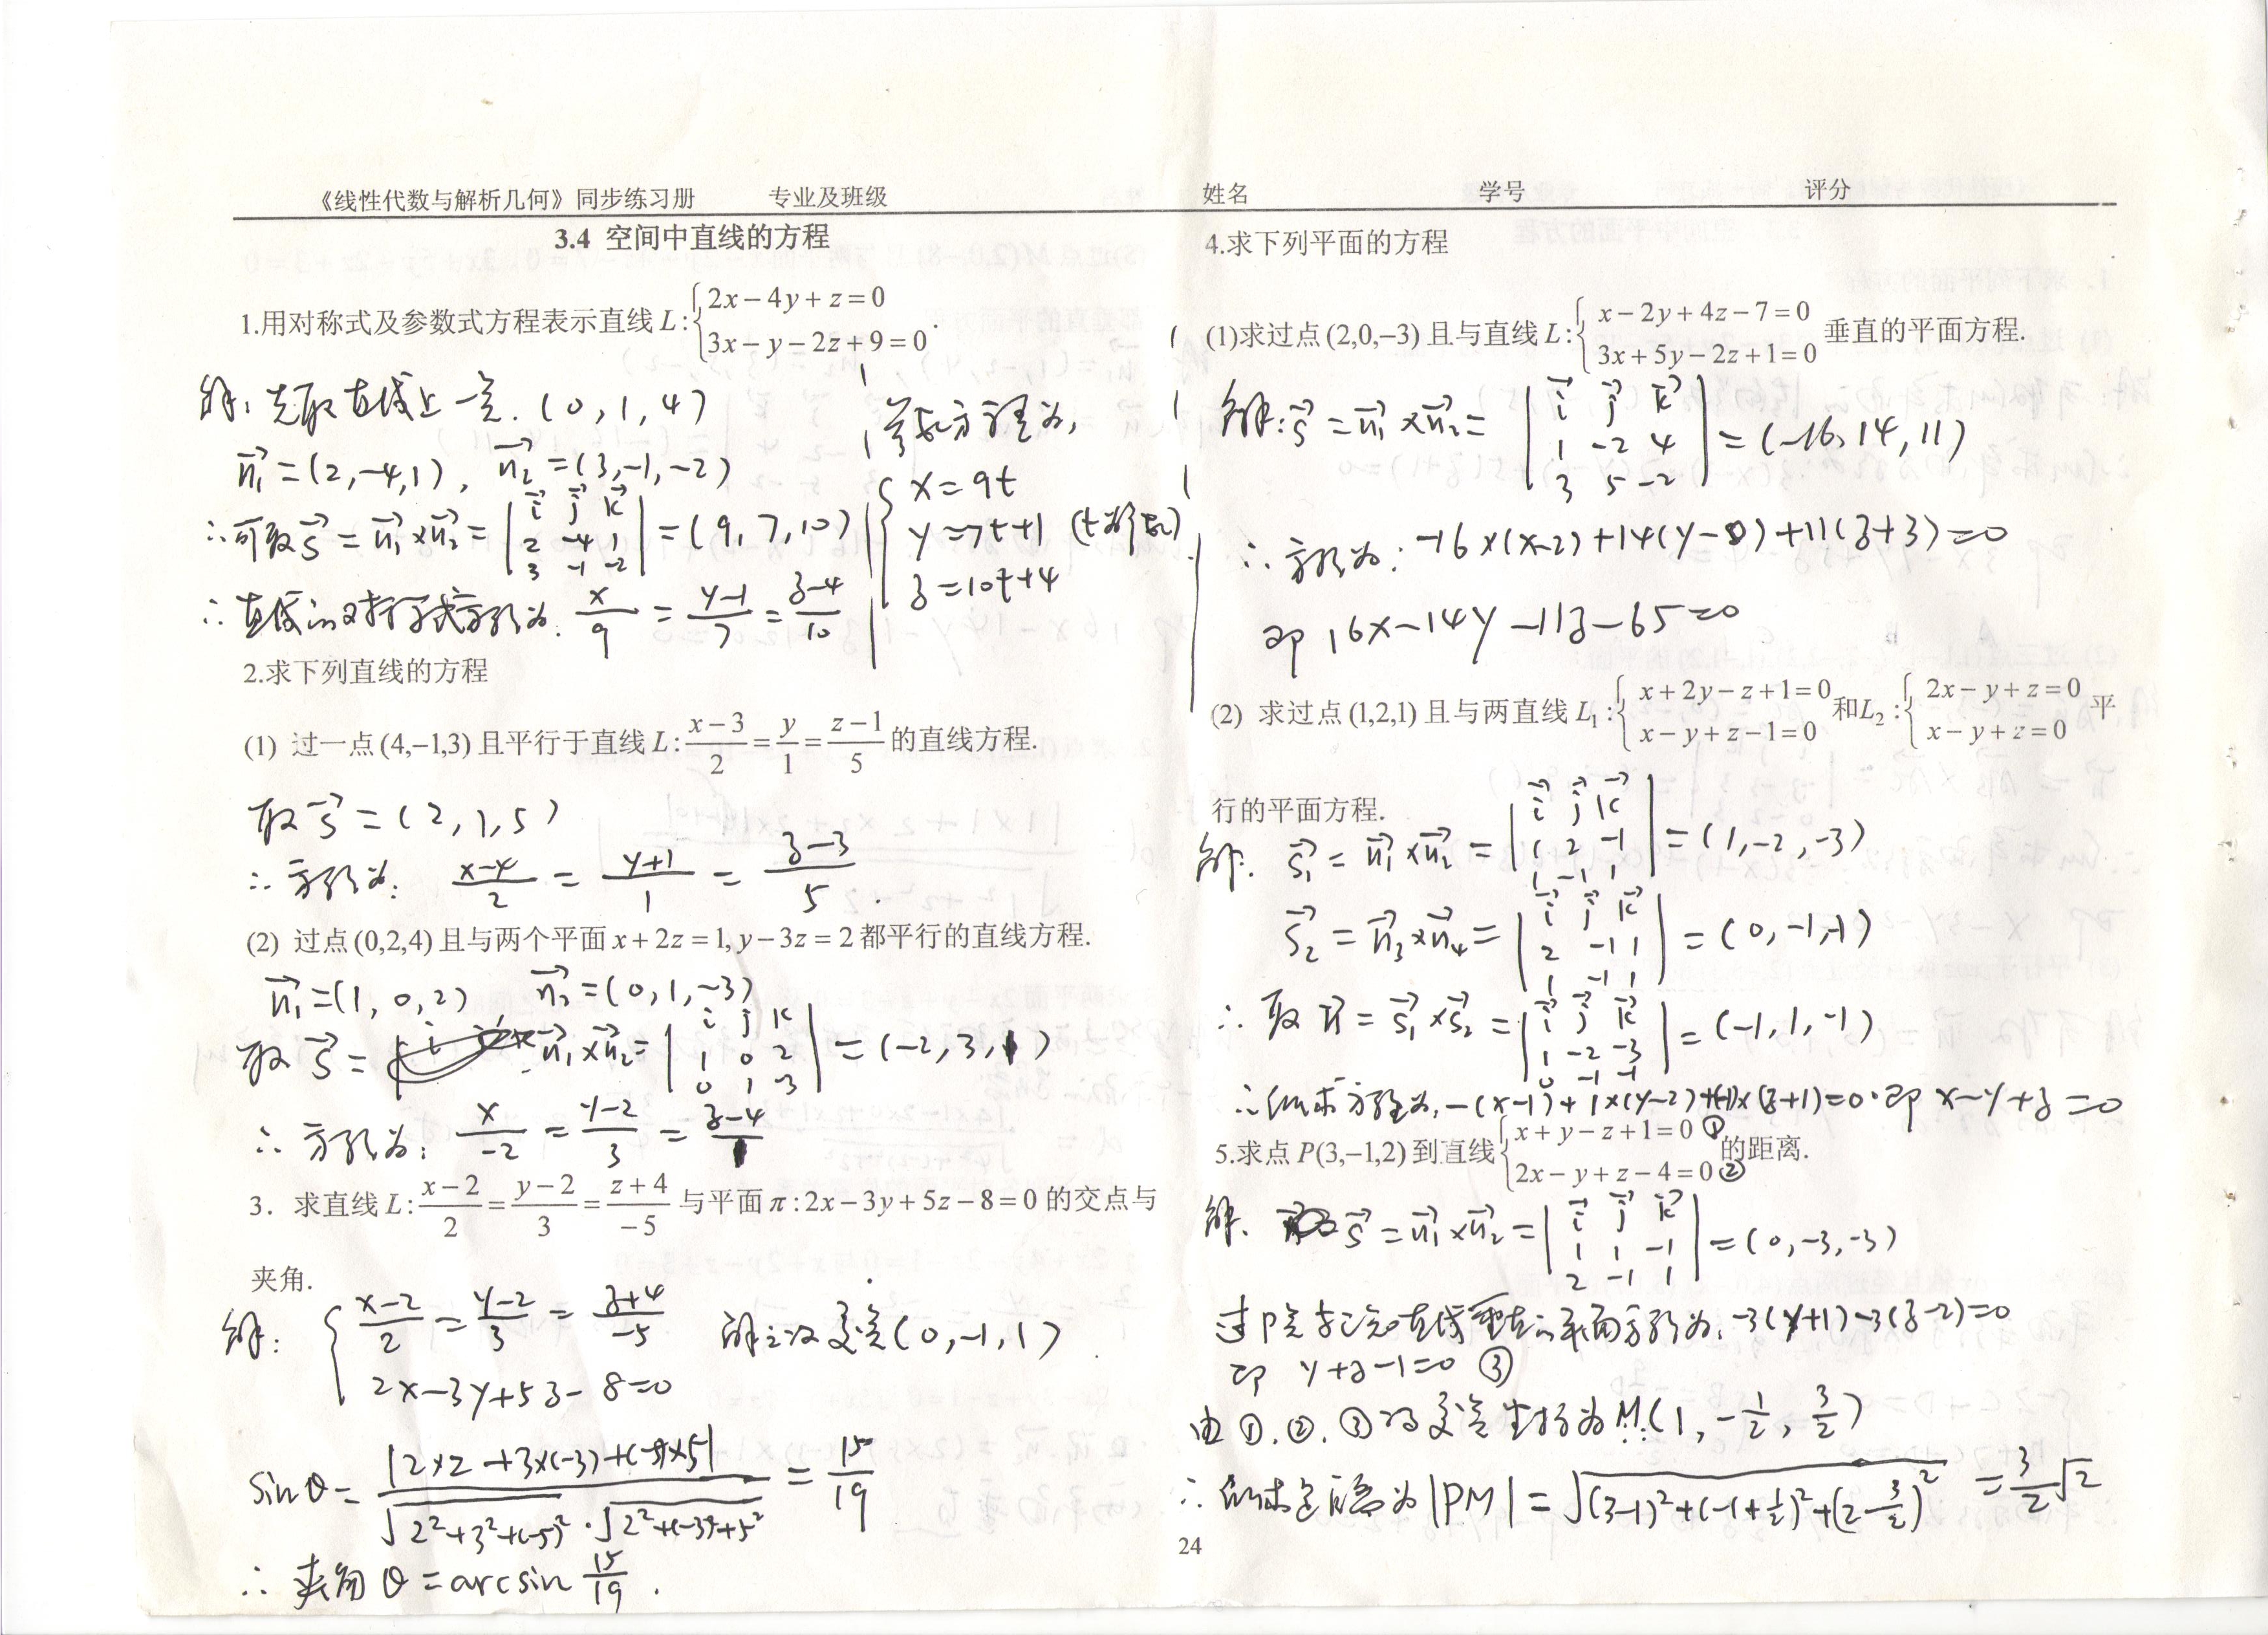 《线性代数与解析几何》同步练习册 专业及班级 姓名 学号 评分
3.4 空间中直线的方程
1.用对称式及参数式方程表示直线 L:{2x−4y+z=0
3x−y−2z+9=0.
解: 先取直线上一点. (0, 1, 4)
n₁=(2,-4,1), n₂=(3,-1,-2)
∴可取 s = n₁×n₂ = |i j k; 2 -4 1; 3 -1 -2| = (9, 7, 10)
∴直线的对称式方程为: x/9 = (y-1)/7 = (z-4)/10
参数方程为:
{x=9t
y=7t+1 (t为参数)
z=10t+4
2.求下列直线的方程
(1) 过一点(4,−1,3)且平行于直线 L: (x−3)/2 = y/1 = (z−1)/5 的直线方程.
取 s = (2, 1, 5)
∴方程为: (x-4)/2 = (y+1)/1 = (z-3)/5.
(2) 过点(0,2,4)且与两个平面 x+2z=1, y−3z=2 都平行的直线方程.
n₁=(1, 0, 2) n₂=(0, 1, -3)
取 s = n₁×n₂ = |i j k; 1 0 2; 0 1 -3| = (-2, 3, 1)
∴方程为: x/-2 = (y-2)/3 = (z-4)/1
3. 求直线 L: (x−2)/2 = (y−2)/3 = (z+4)/−5 与平面 π:2x−3y+5z−8=0 的交点与
夹角.
解: {(x-2)/2 = (y-2)/3 = (z+4)/-5 解之得交点(0,-1,1).
2x-3y+5z-8=0
sinθ = |2×2+3×(-3)+(-5)×5| / (√(2²+3²+(-5)²)·√(2²+(-3)²+5²)) = 15/19
∴夹角θ=arcsin 15/19.
4.求下列平面的方程
(1)求过点(2,0,−3)且与直线 L:{x−2y+4z−7=0
3x+5y−2z+1=0 垂直的平面方程.
解: s = n₁×n₂ = |i j k; 1 -2 4; 3 5 -2| = (-16, 14, 11)
∴方程为: -16×(x-2)+14(y-0)+11(z+3)=0
即 16x-14y-11z-65=0
(2) 求过点(1,2,1)且与两直线 L₁:{x+2y−z+1=0
x−y+z−1=0 和L₂:{2x−y+z=0
x−y+z=0 平
行的平面方程.
解: s₁ = n₁×n₂ = |i j k; 1 2 -1; 1 -1 1| = (1,-2,-3)
s₂ = n₃×n₄ = |i j k; 2 -1 1; 1 -1 1| = (0,-1,-1)
∴取 n = s₁×s₂ = |i j k; 1 -2 -3; 0 -1 -1| = (-1,1,-1)
∴所求方程为: -(x-1)+1×(y-2)+(-1)×(z+1)=0.即 x-y+z=0
5.求点 P(3,−1,2)到直线{x+y−z+1=0 ①
2x−y+z−4=0 ② 的距离.
解: s = n₁×n₂ = |i j k; 1 1 -1; 2 -1 1| = (0,-3,-3)
过P点与已知直线垂直的平面方程为: -3(y+1)-3(z-2)=0
即 y+z-1=0 ③
由①,②,③得交点坐标为M(1, -1/2, 3/2)
∴所求距离为|PM| = √((3-1)²+(-1+1/2)²+(2-3/2)²) = 3/2 √2
24